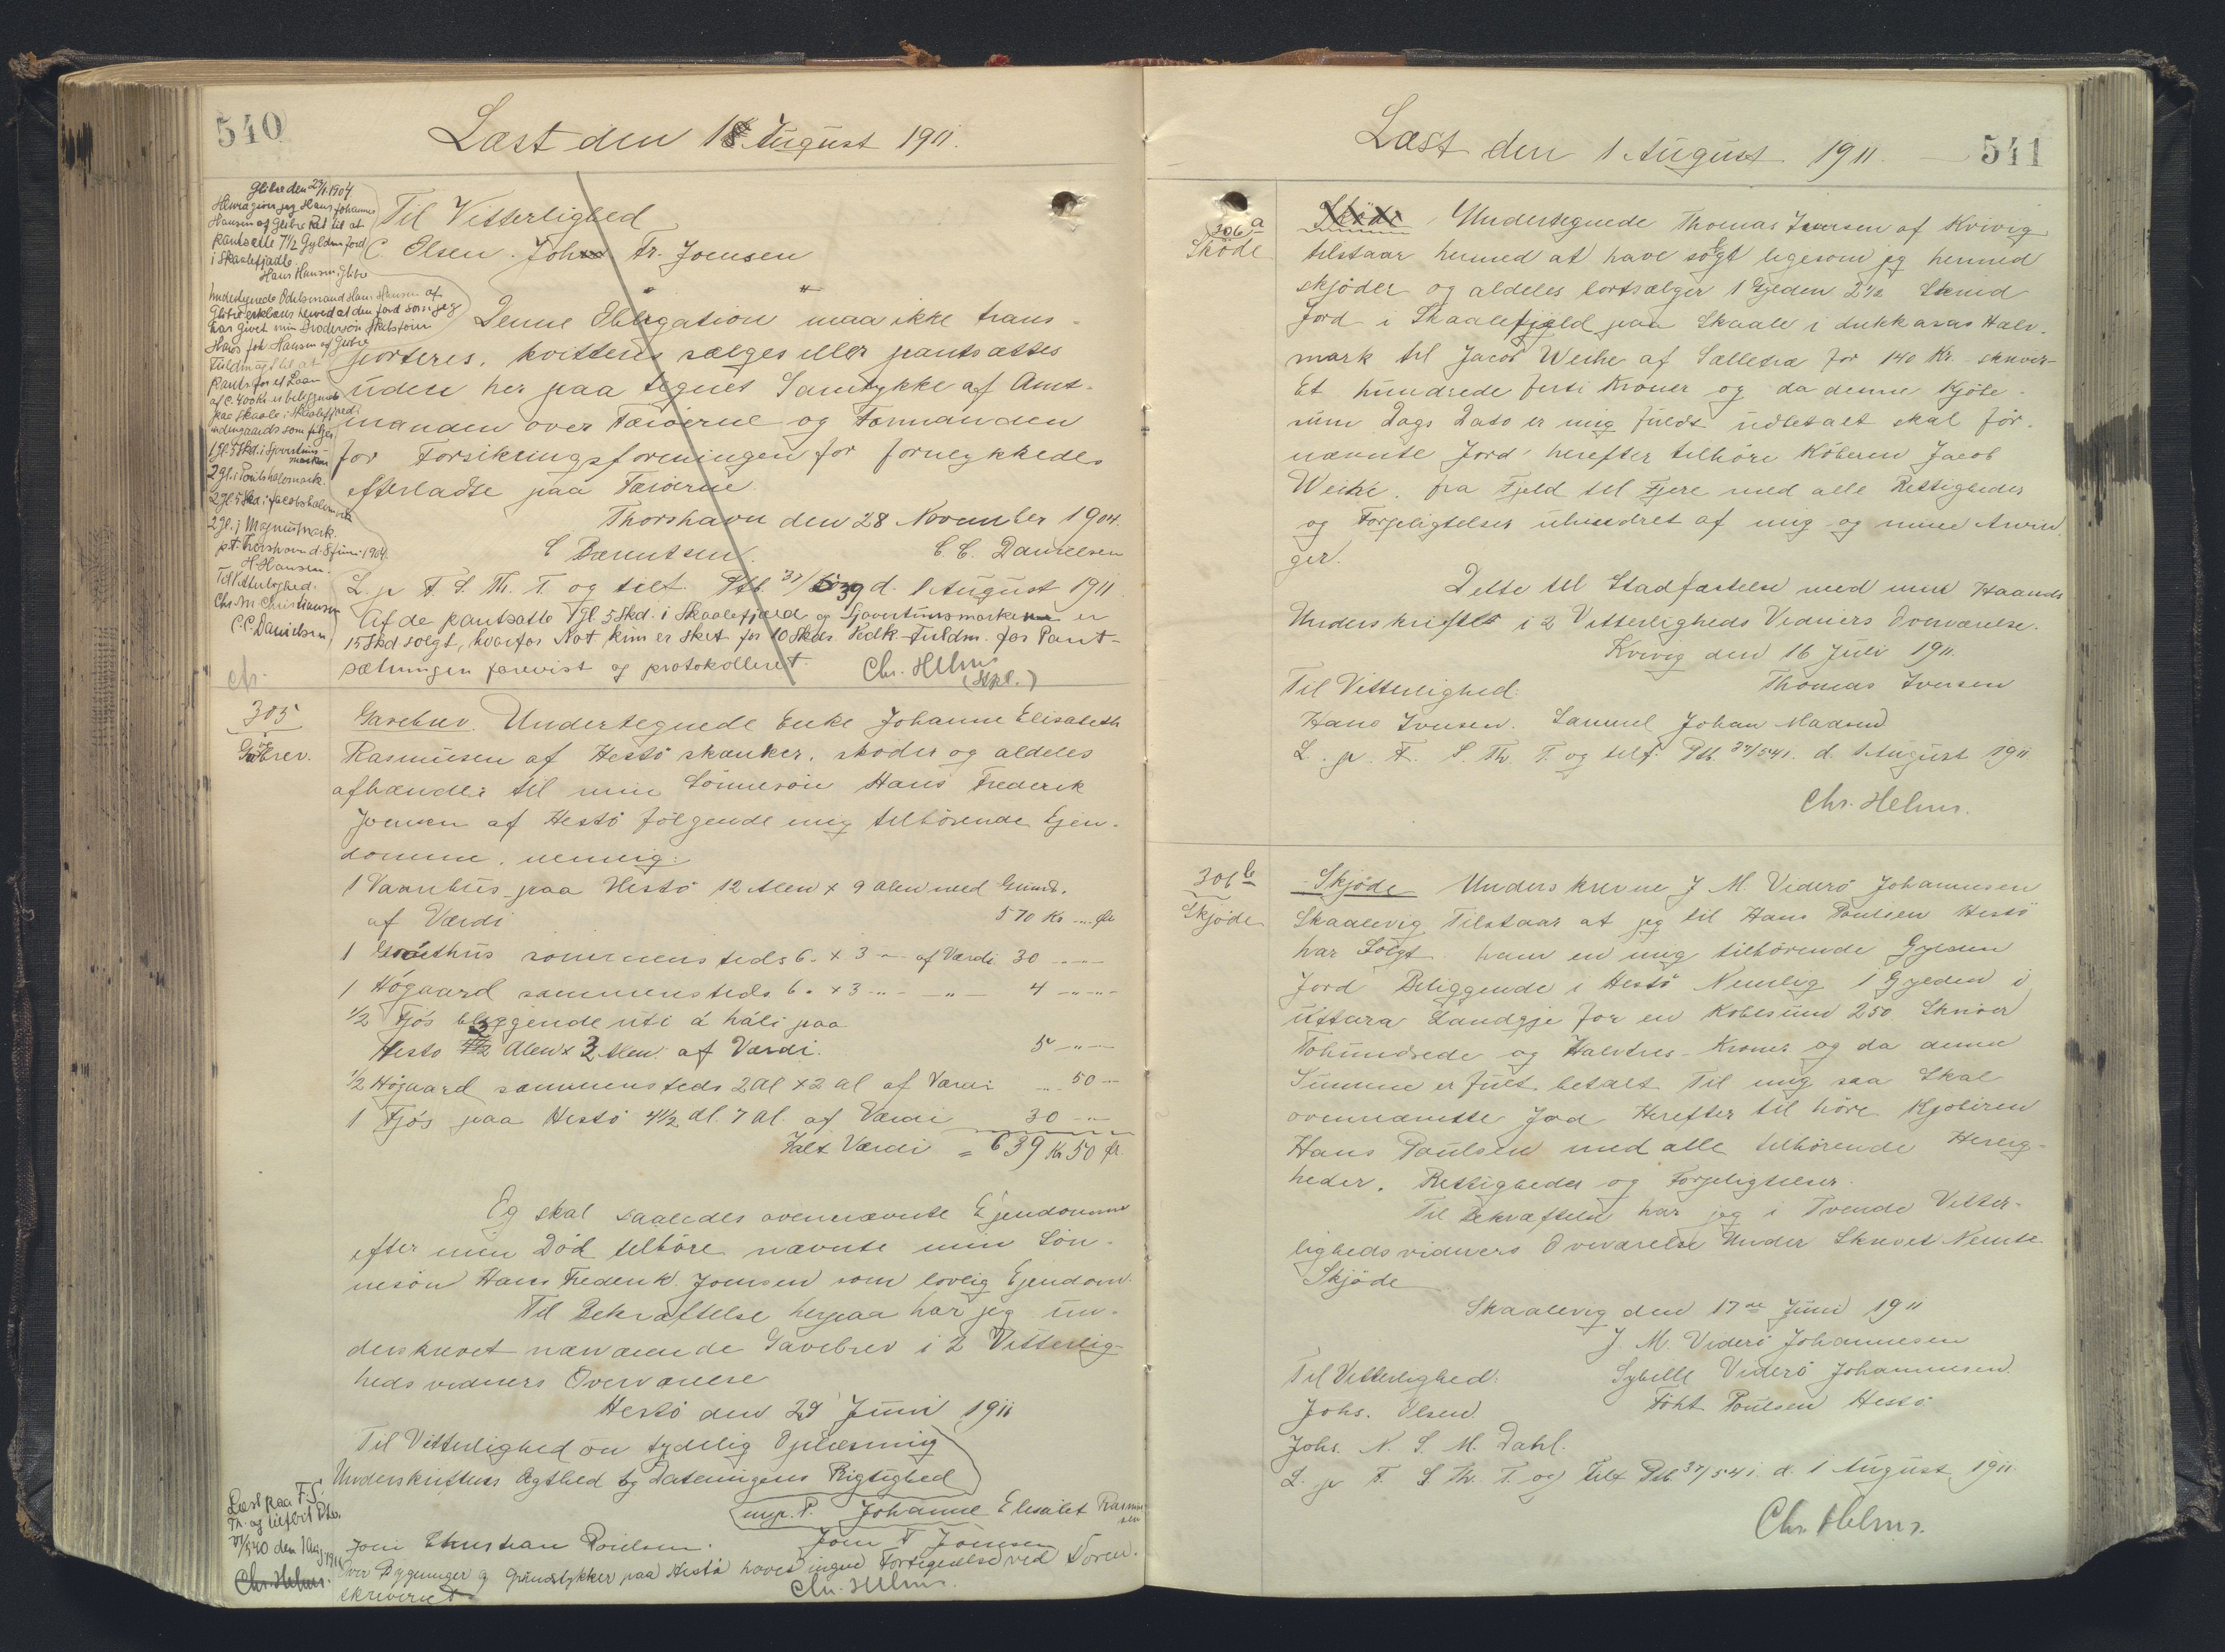 540
Læst den 1. August 1911.
Glibre den 29/1. 1904
Hermed giver jeg Hans Johannes
Hansen af Glibre Ret til at
pantsætte 7 1/2 Gylden Jord
i Skaalefjadle
Hans Hansen, Glibre
Undertegnede Odelsmand Hans Hansen af
Glibre erklærer herved at den Jord som jeg
har givet min Brodersøn
Hans Joh Hansen af Glibre
Fuldmagt til at
pants for et Laan
af C. 400 Kr er beliggende
paa Skaale i Skaalefjæld
indengaards som følger
1 gl. 5 Skd. i
2 gl. i Poulshalvmark.
2 gl. 5 Skd. i Jacobshalvmark
2 gl. i Magnusmark.
p.t. Thorshavn d. 8 Juni 1904.
H Hansen.
Til Vitterlighed.
Chr. M Christiansen
C.C. Danielsen
Til Vitterlighed
C Olsen. Joh Fr. Joensen
Denne Obligation maa ikke trans-
porteres, kvitteres sælges eller pantsættes
uden her paa tegnet Samtykke af Amt-
manden over Færøerne og Formanden
for Forsikringsforeningen for forulykkedes
efterladte paa Færøerne.
Thorshavn den 28 November 1904.
C Bærentsen. C. C. Danielsen
L. p F. S. Th. T. og tilf. Ptk. 37/539 d. 1 August 1911
Af de pantsatte 7 Gl. 5 Skd. i Skaalefjæld og er
15 Skd solgt, hvorfor Not kun er sket for 10 Skds. Vedk. Fuldm. for Pant-
sætningen forevist og protokolleret.
Chr. Helms
(Stpl.)
305
Gavebrev.
Gavebrev. Undertegnede Enke Johanne Elisabeth
Rasmusen af Hestö skænker, skøder og aldeles
afhænder til min Sönnesön Hans Frederik
Joensen af Hestö fölgende mig tilhörende Ejen-
domme, nemlig:
1 Vaanhus paa Hestö 12 Alen x 9 alen med Grund.
af Værdi 570 Kr ... Øre
1 Gróthús sammensteds 6. x 3 -"- af Værdi 30 -"-
1 Högaard sammensteds 6. x 3 -"- -"- 4 -"-
1/2 Fjós beliggende uti á háli paa
Hestö Alen x 3 Alen. af Værdi. 5 -"-
1/2 Högaard sammensteds 2 Al x 2 al af Værdi ... 50 -
1 Fjós paa Hestö 4 1/2 al. 7 al. af Værdi 30 -"-
Ialt Værdi = 639 Kr 50 Ør.
Og skal saaledes ovennævnte Ejendomme
efter min Död tilhöre nævnte min Sön-
nesön Hans Frederik Joensen som lovlig Ejendom.
Til Bekræftelse herpaa har jeg un-
derskrevet nærværende Gavebrev i 2 Vitterlig-
heds vidners Overværelse
Hestö den 29 Juni 1911
Til Vitterlighed om tydelig Oplæsning
Underskriftens Ægthed og Dateringens Rigtighed
m.f.P. Johanne Elisabet Rasmussen
Joen Christian Poulsen. Joen F Joensen
Læst paa F. S.
Th. og tilført Ptk.
37/540 den 1 Aug 1911
Chr. Helms.
Over Bygninger og Grundstykker paa Hestö haves ingen Fortegnelse ved Soren-
skriveriet
Chr. Helms.
Læst den 1 August 1911. 541
306 a
Sköde
Undertegnede Thomas Iversen af Kvivig
tilstaar hermed at have solgt ligesom jeg hermed
skjöder og aldeles bortsælger 1 Gylden 2 1/2 Skind
Jord i Skaalefjæld paa Skaale i dukkaras Halv-
mark til Jacob Weihe af Sælletræ for 140 Kr. skriver
Et hundrede förti Kroner og da denne Kjöbe-
sum Dags Dato er mig fuldt udbetalt skal for-
nævnte Jord herefter tilhöre Köberen Jacob
Weihe. fra Fjeld til Fjere med alle Rettigheder
og Forpligtelser uhindret af mig og mine Arvin-
ger.
Dette til Stadfæstelse med min Haands
Underskrift i 2 Vitterligheds Vidners Overværelse.
Kvivig den 16 Juli 1911.
Til Vitterlighed: Thomas Iversen
Hans Iversen. Samuel Johan Madsen
L. p. F. S. Th. T. og tilf. Ptk. 37/541. d. 1 August 1911
Chr. Helms.
306 b
Skjöde
Skjöde Underskrevne J M. Viderö Johannesen
Skaalevig Tilstaar at jeg til Hans Poulsen Hestö
har Solgt ham en mig tilhörende Gylden
Jord Beliggende i Hestö Nemlig 1 Gylden i
uttara Landgje for en Købesum 250 Skriver
Tohundrede og Halvtres - Kroner og da denne
Summe er fult betalt Til mig saa Skal
ovennævnte Jord Herefter til höre Kjøberen
Hans Poulsen med alle tilhörende Herlig-
heder. Rettigheder og Forpligtelser.
Til Bekræftelse har jeg i Tvende Vitter-
ligheds vidners Overværelse Under Skrevet Nemte
Skjöde
Skaalevig den 17de Juni 1911
J. M. Viderö Johannesen
Til Vitterlighed: Sybille Viderö Johannesen.
Johs. Olsen Poulsen Hestö
Johs. N. S. M. Dahl.
L. p F. S Th. T. og tilf Ptk 37/541. d. 1 August 1911.
Chr. Helms.